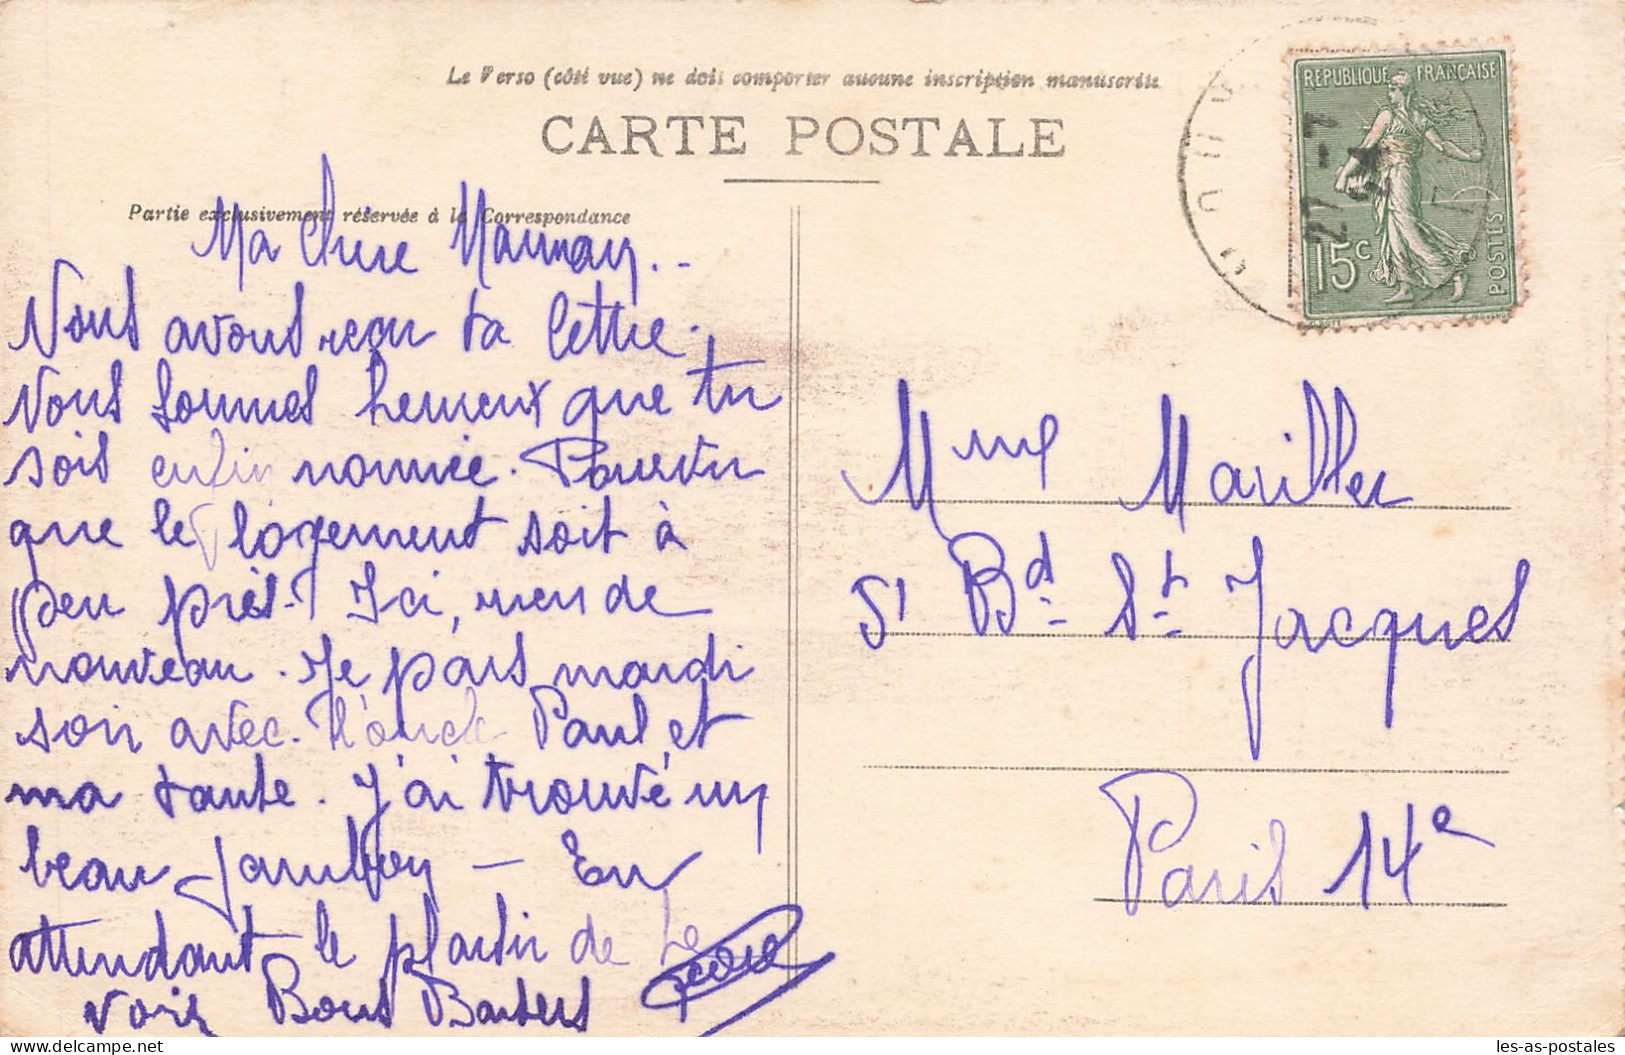 Le Verso (côté vue) ne doit comporter aucune inscription manuscrite
CARTE POSTALE
Partie exclusivement réservée à la Correspondance
RÉPUBLIQUE FRANÇAISE
15c
POSTES
27 - 7
24
Ma Chère Maman..
Nous avons reçu ta lettre.
Nous sommes heureux que tu
sois enfin nommée. Pourvu
que le logement soit à
peu près. Ici, rien de
nouveau. Je pars mardi
soir avec l'oncle Paul et
ma tante. J'ai trouvé un
beau - En
attendant le plaisir de te
voir Bons Baisers
Mme Mariller
51 Bd St Jacques
Paris 14e
les-as-postales
les-as-postales.com